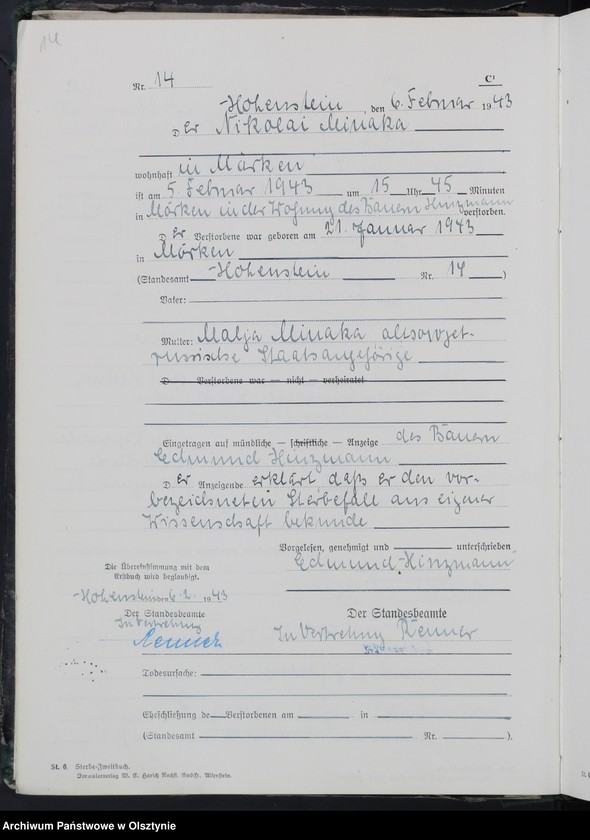 14
C¹
Nr. 14
Hohenstein, den 6. Februar 1943
Der Nikolai Minaka
wohnhaft in Mörken
ist am 5. Februar 1943 um 15 Uhr 45 Minuten
in Mörken in der Wohnung des Bauern Hinzmann verstorben.
Der Verstorbene war geboren am 21. Januar 1943
in Mörken
(Standesamt Hohenstein Nr. 14)
Vater:
Mutter: Malja Minaka altsowjet-
russische Staatsangehörige
D Verstorbene war — nicht — verheiratet
Eingetragen auf mündliche — schriftliche — Anzeige des Bauern
Edmund Hinzmann
Der Anzeigende erklärt daß er den vor-
bezeichneten Sterbefalle aus eigener
Wissenschaft bekunde
Vorgelesen, genehmigt und unterschrieben
Edmund Hinzmann
Die Übereinstimmung mit dem
Erstbuch wird beglaubigt.
Hohenstein den 6.2. 1943
Der Standesbeamte
In Vertretung
Renner
Der Standesbeamte
In Vertretung Renner
Todesursache:
Eheschließung de Verstorbenen am in
(Standesamt Nr. ).
St. 6. Sterbe-Zweitbuch.
Formularverlag W. E. Harich Nachf. GmbH. Allenstein.
Archiwum Państwowe w Olsztynie